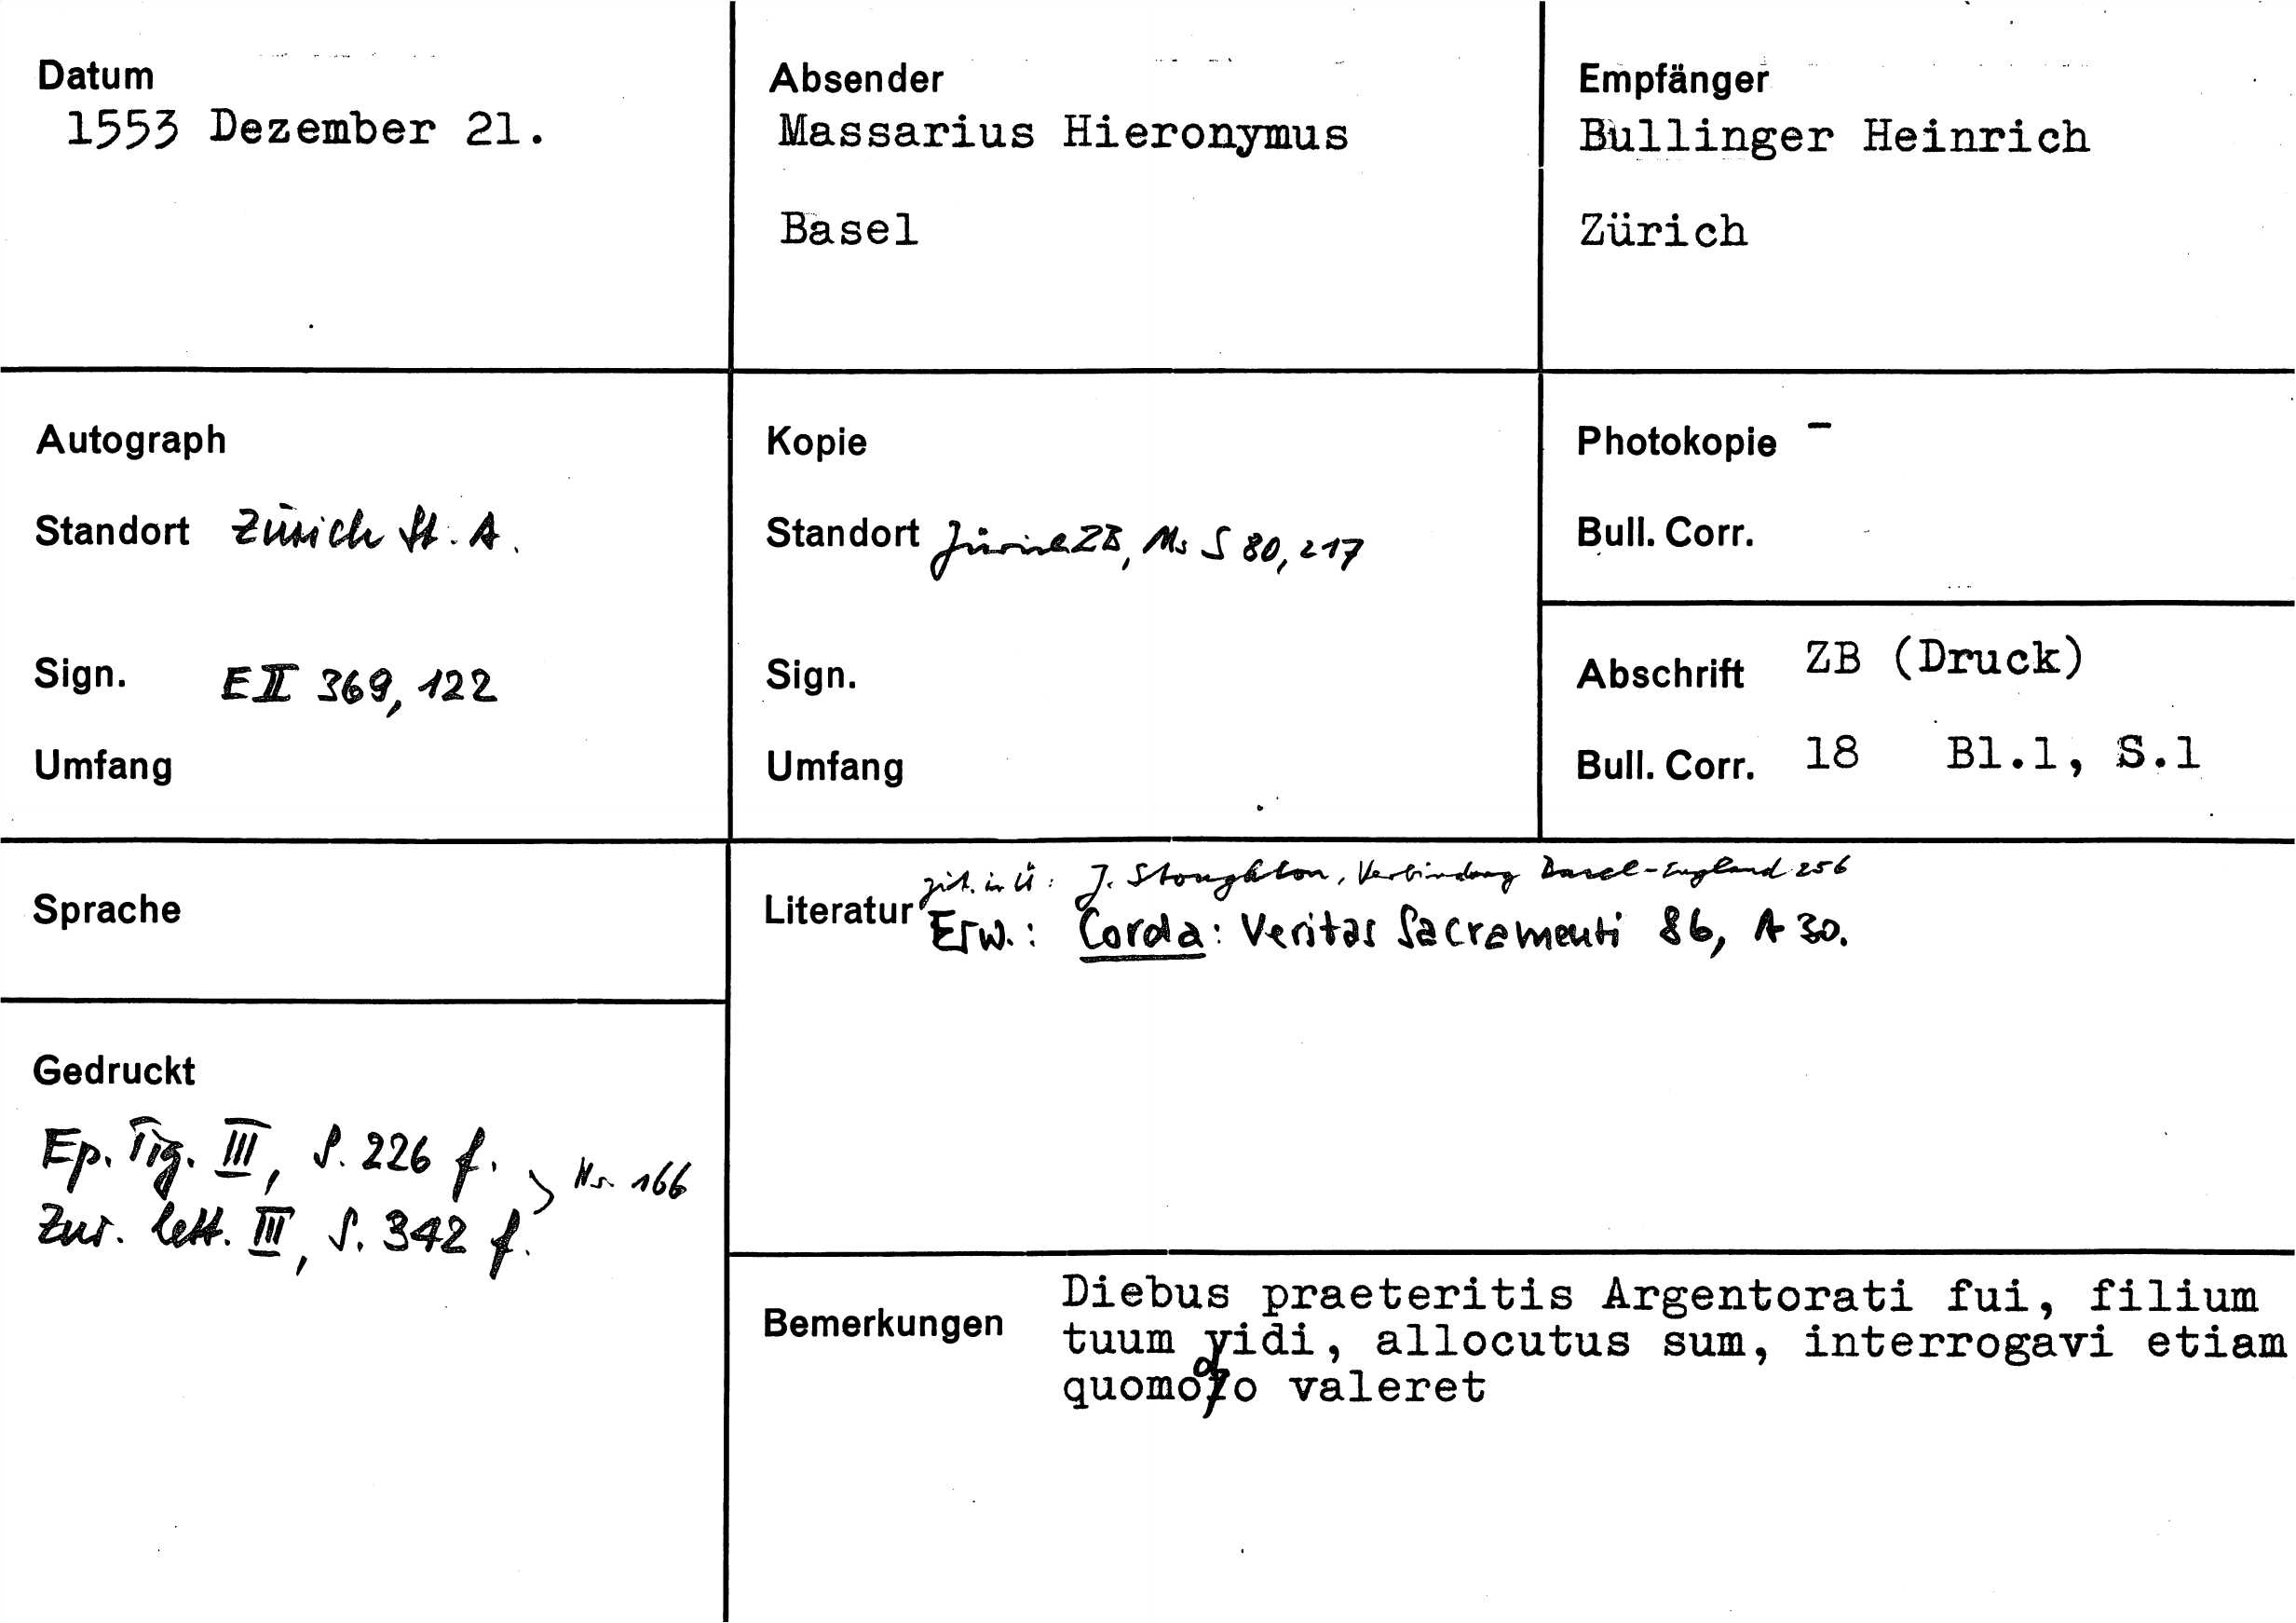 Datum
1553 Dezember 21.
Absender
Massarius Hieronymus
Basel
Empfänger
Bullinger Heinrich
Zürich
Autograph
Standort Zürich St. A.
Sign. E II 369, 122
Umfang
Kopie
Standort Zürich ZB, Ms S 80, 217
Sign.
Umfang
Photokopie –
Bull. Corr.
Abschrift ZB (Druck)
Bull. Corr. 18 Bl.1, S.1
Sprache
Gedruckt
Ep. Tig. III, S. 226 f.
Zur. lett. III, S. 342 f.
Nr. 166
zit. in Ü: J. Stoughton, Verbindung Basel-England 256
Literatur Erw.: Corda: Veritas Sacramenti 86, A 30.
Bemerkungen
Diebus praeteritis Argentorati fui, filium
tuum vidi, allocutus sum, interrogavi etiam
quomodo valeret